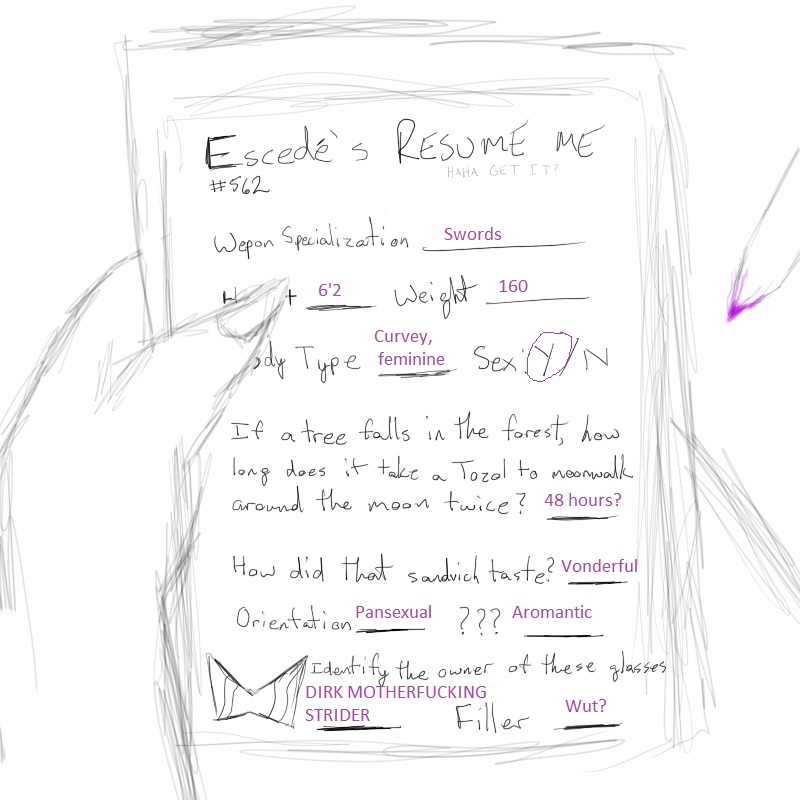 Escedé`s RESUME ME
HAHA GET IT?
#562
Wepon Specialization Swords
6'2 Weight 160
ody Type Curvey, feminine Sex: Y/N
If a tree falls in the forest, how
long does it take a Tozol to moonwalk
around the moon twice? 48 hours?
How did that sandvich taste? Vonderful
Orientation Pansexual ??? Aromantic
Identify the owner of these glasses
DIRK MOTHERFUCKING
STRIDER
Filler Wut?